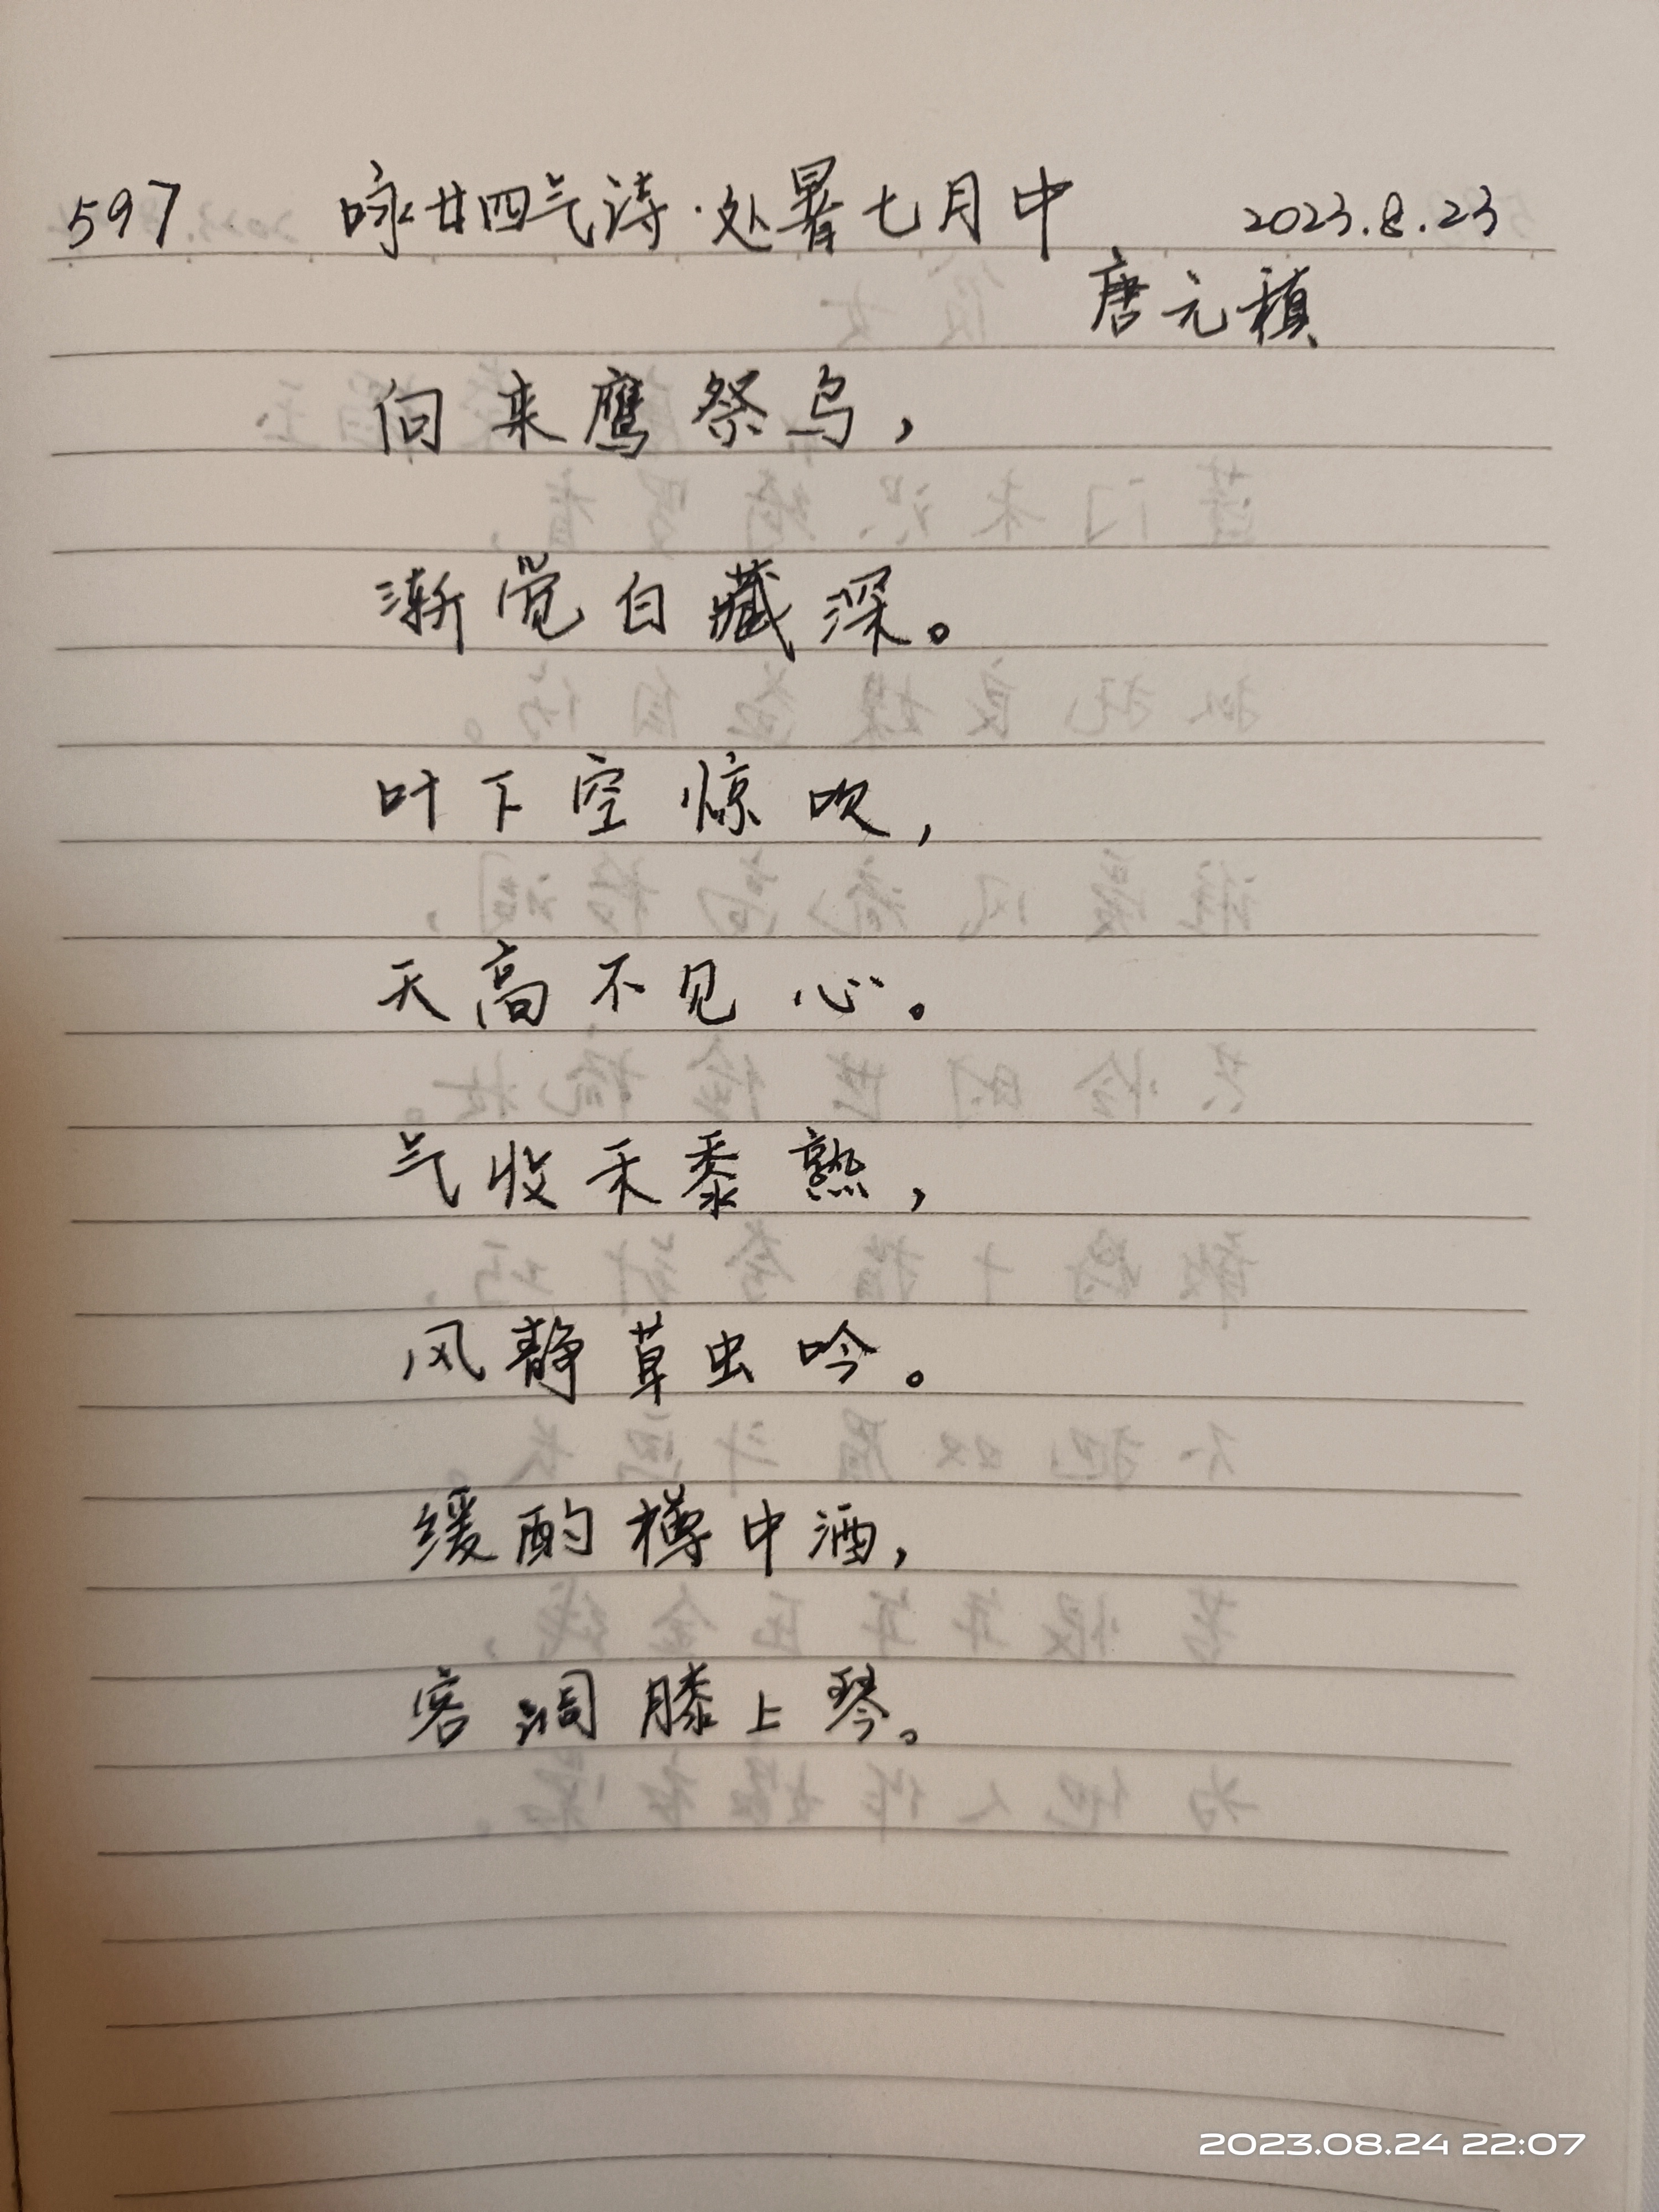 597 咏廿四气诗·处暑七月中 2023.8.23
唐元稹
向来鹰祭鸟,
渐觉白藏深。
叶下空惊吹,
天高不见心。
气收禾黍熟,
风静草虫吟。
缓酌樽中酒,
容调膝上琴。
2023.08.24 22:07